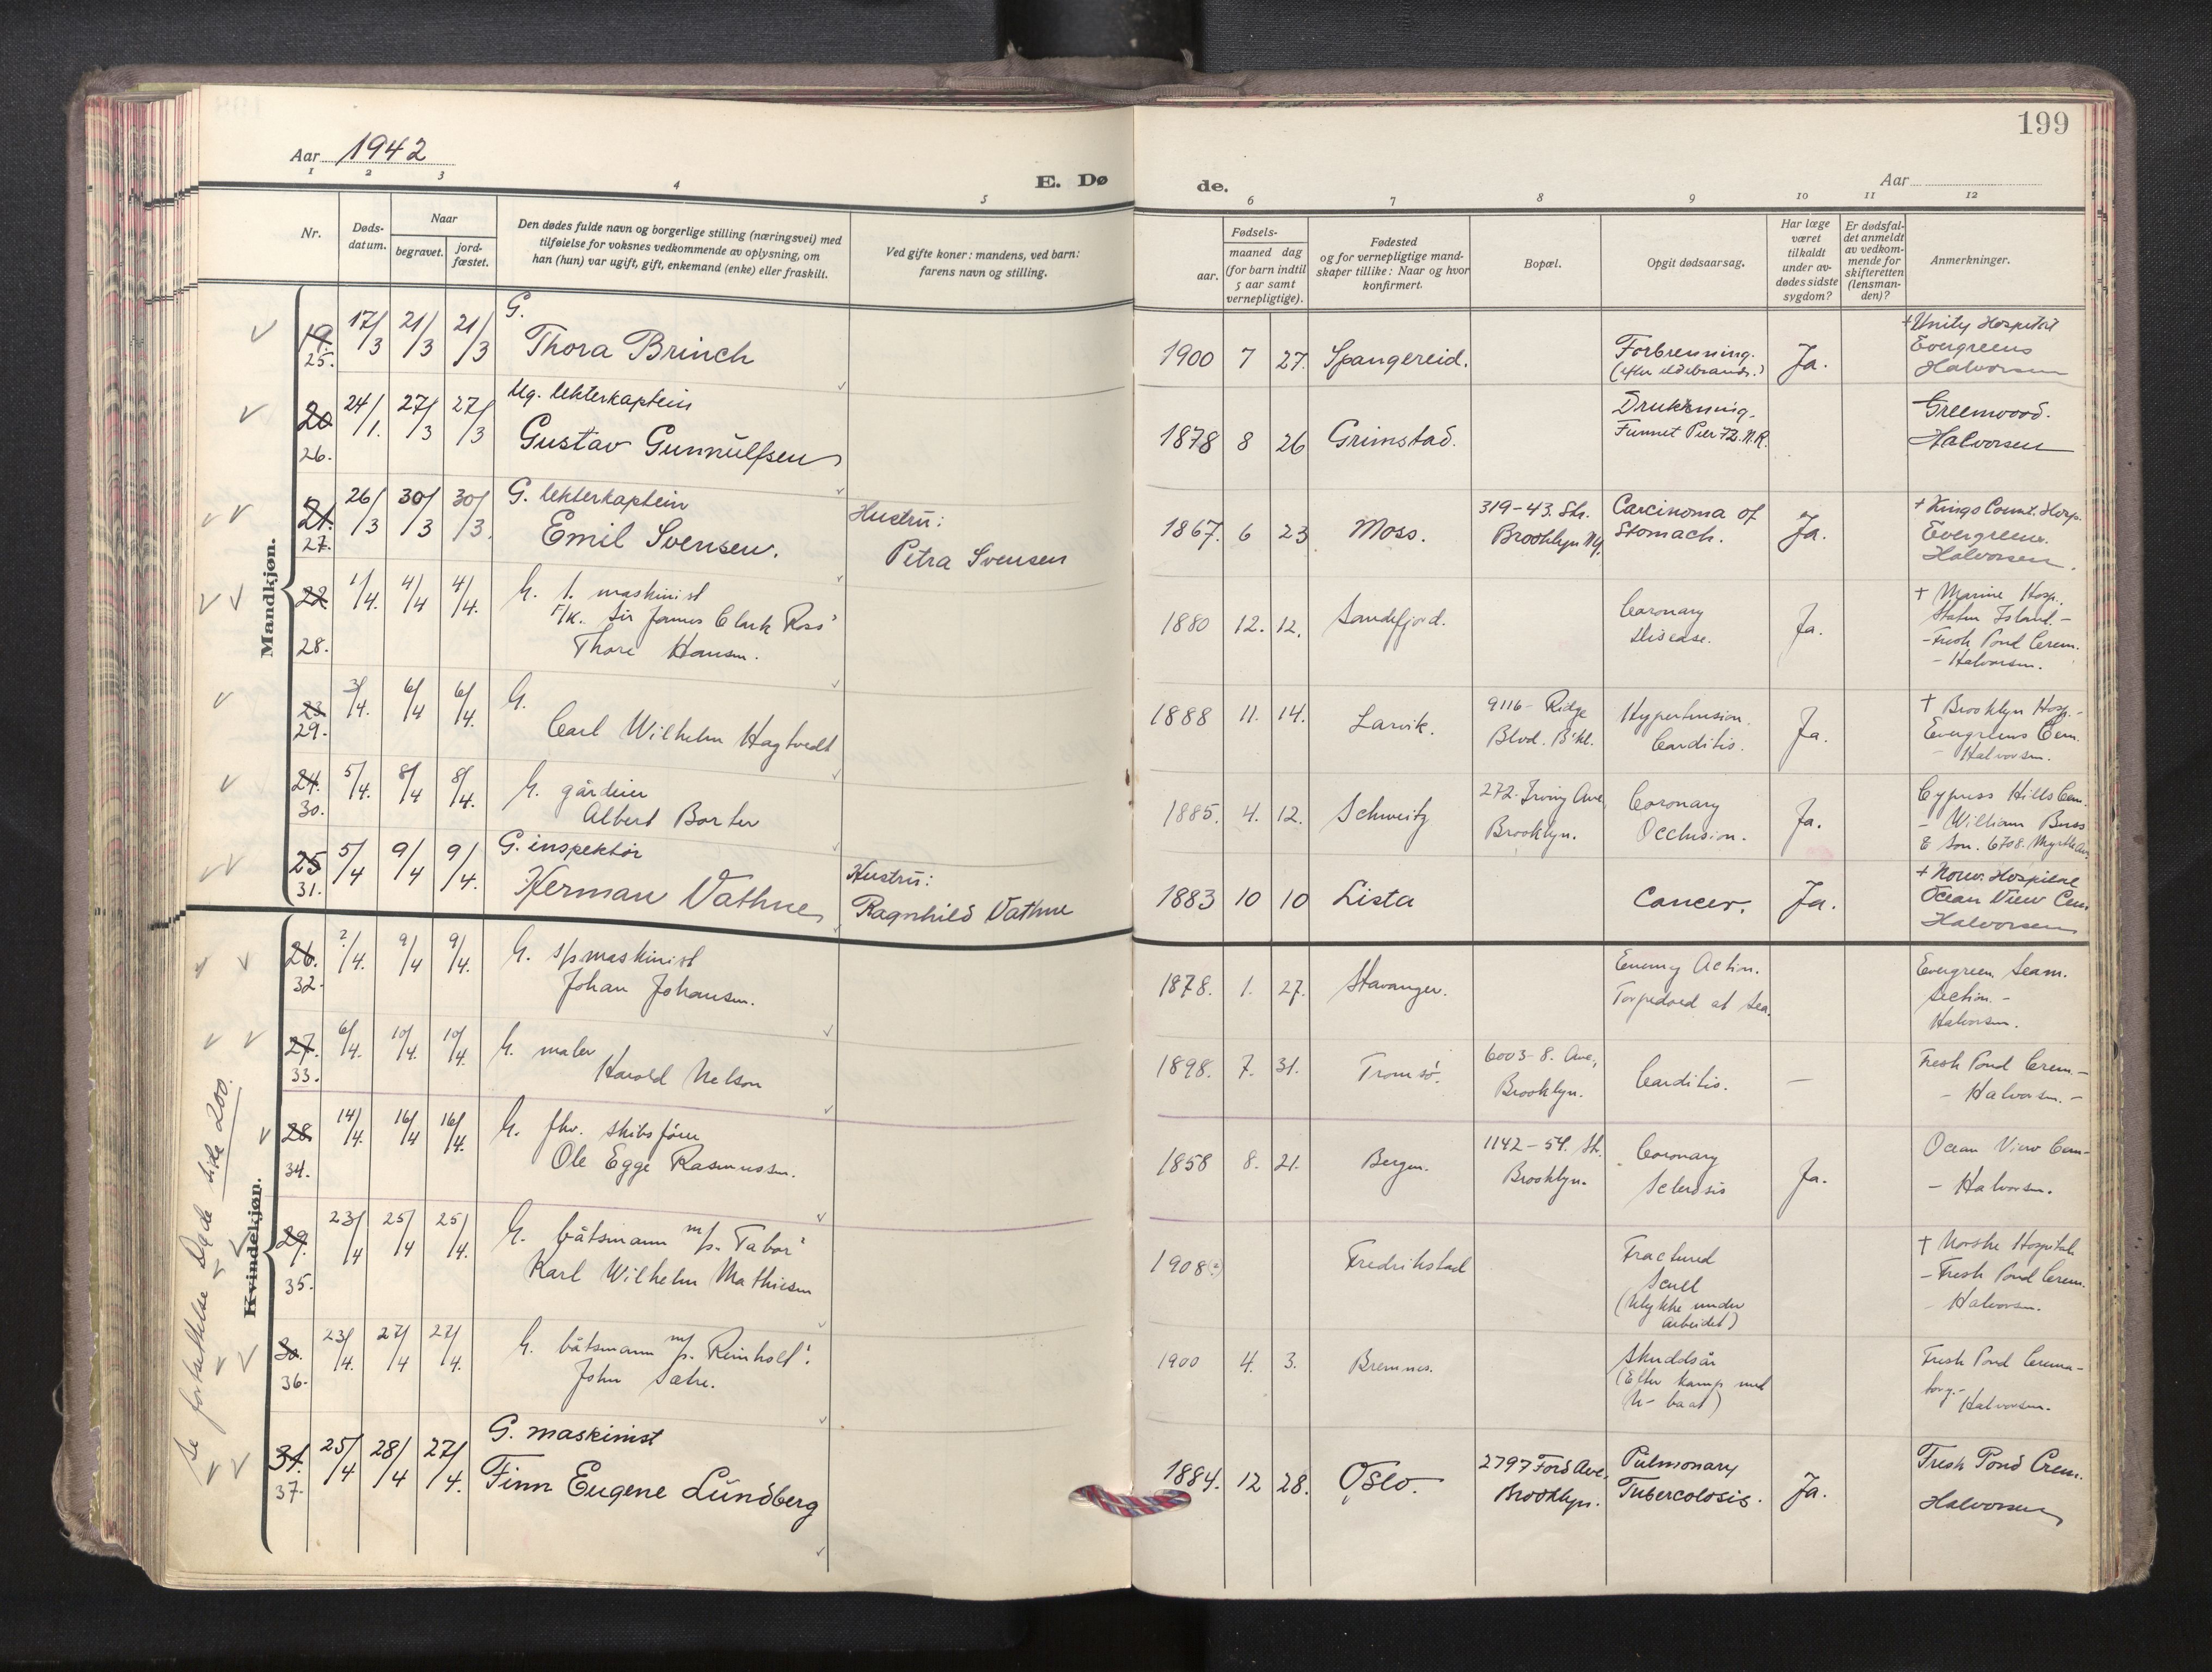 199
Aar 1942
E. Dø de.
Aar
1 2 3 4 5 6 7 8 9 10 11 12
Nr.
Døds-
datum.
Naar
begravet.
jord-
fæstet.
Den dødes fulde navn og borgerlige stilling (næringsvei) med
tilføielse for voksnes vedkommende av oplysning, om
han (hun) var ugift, gift, enkemand (enke) eller fraskilt.
Ved gifte koner: mandens, ved barn:
farens navn og stilling.
Fødsels-
aar.
maaned dag
(for barn indtil
5 aar samt
vernepligtige).
Fødested
og for vernepligtige mand-
skaper tillike: Naar og hvor
konfirmert.
Bopæl.
Opgit dødsaarsag.
Har læge
været
tilkaldt
under av-
dødes sidste
sygdom?
Er dødsfal-
det anmeldt
av vedkom-
mende for
skifteretten
(lensman-
den)?
Anmerkninger.
Mandkjøn.
19. 25. 17/3 21/3 21/3 G.
Thora Brinch
1900 7 27. Spangereid. Forbrenning.
(efter eldebrand.) Ja.
+ Unity Hospital
Evergreens
Halvorsen
20 26. 24/1. 27/3 27/3 Ug. lekterkaptein
Gustav Gunnulfsen
1878 8 26 Grimstad. Drukning.
Funnet Pier 72. N.R.
Greenwood.
Halvorsen
21. 27. 26/3 30/3 30/3. G. lekterkaptein
Emil Svensen.
Hustru:
Petra Svensen
1867. 6 23 Moss. 319-43. Str.
Brooklyn Ny.
Carcinoma of
Stomach. Ja.
+ Kings Count. Hosp.
Evergreens.
Halvorsen.
22 28. 1/4. 4/4 4/4. G. 1. maskinist
F/K. Sir James Clark Ross'
Thore Hansen.
1880 12. 12. Sandefjord. Coronary
Disease. Ja.
+ Marine Hosp.
Staten Island. -
- Fresh Pond Crem.
- Halvorsen.
23 29. 3/4. 6/4 6/4. G.
Carl Wilhelm Hagtvedt
1888 11. 14. Larvik. 9116- Ridge
Blvd. B'kl.
Hypertension.
Carditis. Ja.
+ Brooklyn Hosp. -
Evergreens Cem.
- Halvorsen.
24. 30. 5/4. 8/4 8/4. G. gårdeier
Albert Borter
1885. 4. 12. Schweitz 272. Irving Ave
Brooklyn.
Coronary
Occlusion. Ja.
Cypress Hills Cem.
- William Buss
& Son. 6708. Myrtle Av.
25 31. 5/4 9/4 9/4. G. inspektør
Herman Vathne
Hustru:
Ragnhild Vathne
1883 10 10 Lista Cancer. Ja.
+ Norw. Hospital
Ocean View Cem
Halvorsen
Kvindekjøn.
Se fortsettelse Døde side 200.
26. 32. 2/4. 9/4 9/4. G. s/p maskinist
Johan Johansen.
1878. 1. 27. Stavanger. Enemy Action.
Torpedoed at Sea.
Evergreen Seam.
Section. -
Halvorsen.
27. 33. 6/4. 10/4. 10/4. G. maler
Harold Nelson
1898. 7. 31. Tromsö. 6003- 8. Ave,
Brooklyn.
Carditis. —
Fresh Pond Crem. -
- Halvorsen. -
28 34. 14/4. 16/4 16/4. G. fhv. skibsfører
Ole Egge Rasmussen.
1858 8. 21. Bergen. 1142- 54. Str.
Brooklyn.
Coronary
Sclerosis Ja.
Ocean View Cem-
- Halvorsen.
29. 35. 23/4 25/4 25/4. G. båtsmann m/s. Tabor'
Karl Wilhelm Mathiesen
1908(?) Fredrikstad Fractured
Scull
(Ulykke under
arbeidet)
+ Norske Hospital
- Fresh Pond Crem.
- Halvorsen.
30. 36. 23/4. 27/4 27/4. G. båtsmann m/s. Reinholt'.
John Sætre.
1900 4. 3. Bremnes. Skuddsår
(Efter kamp med
U- baat)
Fresh Pond Crema-
tory. -
Halvorsen.
31. 37. 25/4 28/4 27/4. G. maskinist
Finn Eugene Lundberg
1884. 12 28. Oslo. 2797 Ford Ave.
Brooklyn.
Pulmonary
Tubercolosis. Ja.
Fresh Pond Crem.
Halvorsen